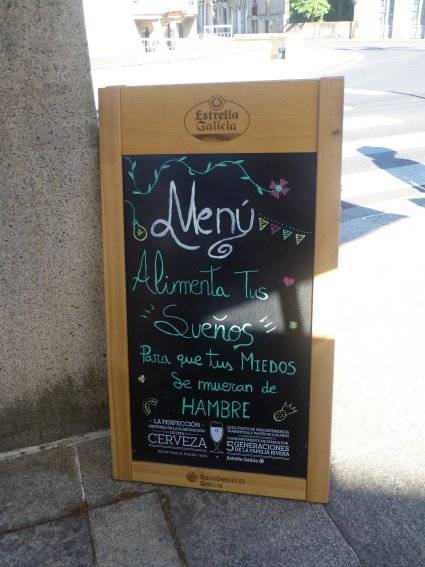 Estrella
Galicia
Menú
Alimenta Tus
Sueños
Para que tus MIEDOS
Se mueran de
HAMBRE
LA PERFECCIÓN
CERVEZA
ES EL FRUTO DE UNA EXPERIENCIA
5 GENERACIONES
DE LA FAMILIA RIVERA
Estrella Galicia
Xacobeo 21·22
Galicia